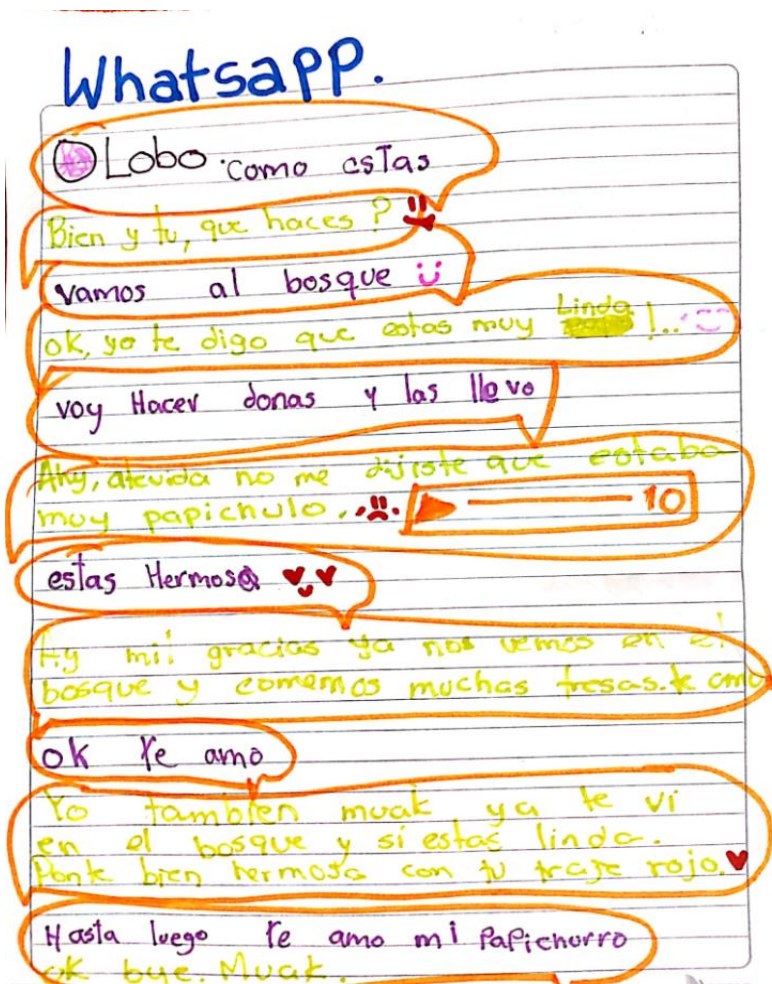 Whatsapp.
Lobo. como estas
Bien y tu, que haces?
vamos al bosque
ok, yo te digo que estas muy Linda!..
voy Hacer donas y las llevo
Ahy, atevida no me dijiste que estaba
muy papichulo. 10
estas Hermosa
Ay mil gracias ya nos vemos en el
bosque y comemos muchas fresas. te amo
ok te amo
Yo tambien muak ya te vi
en el bosque y si estas linda.
Ponte bien hermosa con tu traje rojo.
Hasta luego te amo mi Papichurro
ok bye. Muak.